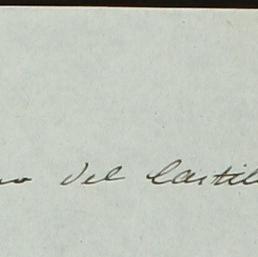 no del Castil